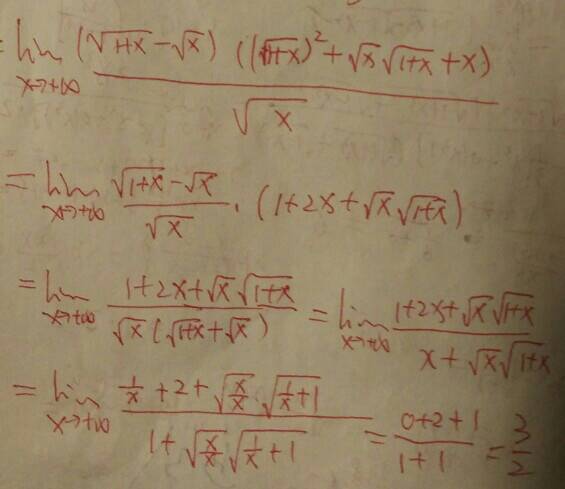 = lim x→+∞ (√(1+x) − √x) ((√(1+x))² + √x √(1+x) + x) / √x
= lim x→+∞ (√(1+x) − √x) / √x · (1+2x+√x √(1+x))
= lim x→+∞ (1+2x+√x √(1+x)) / (√x (√(1+x) + √x)) = lim x→+∞ (1+2x+√x √(1+x)) / (x+√x √(1+x))
= lim x→+∞ (1/x + 2 + √(x/x) √(1/x + 1)) / (1 + √(x/x) √(1/x + 1)) = (0+2+1) / (1+1) = 3/2